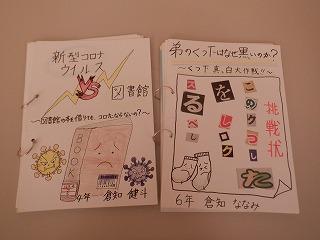 新型コロナ
ウイルス
VS
図書館
〜図書館の本を借りても、コロナにならないの?〜
BOOK
4年 倉知 健斗
弟のくつ下はなぜ黒いのか?
〜くつ下真っ白大作戦!!〜
挑戦状
6年 倉知 ななみ